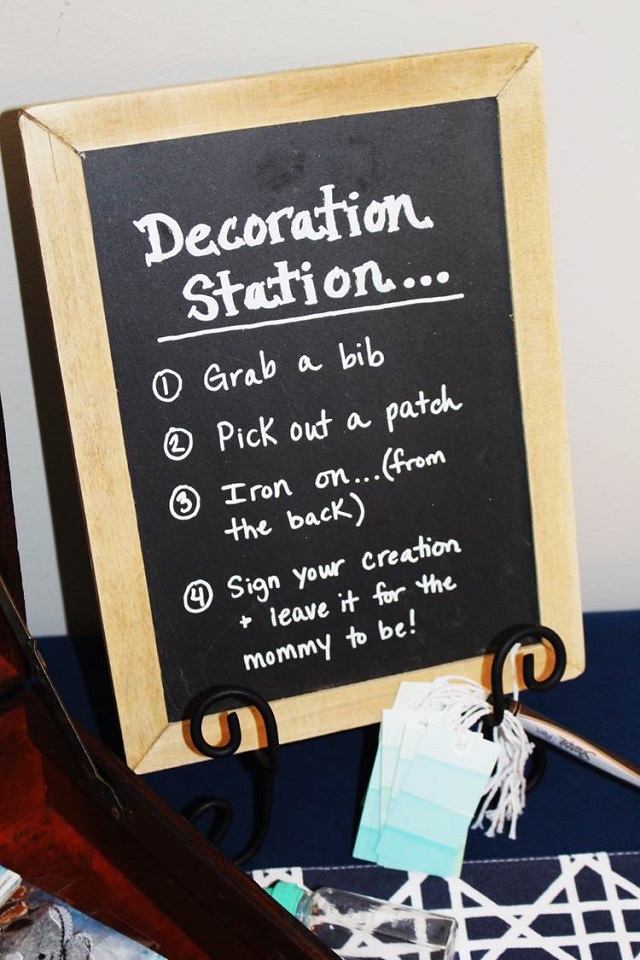 Decoration
Station...
① Grab a bib
② Pick out a patch
③ Iron on...(from
the back)
④ Sign your creation
+ leave it for the
mommy to be!